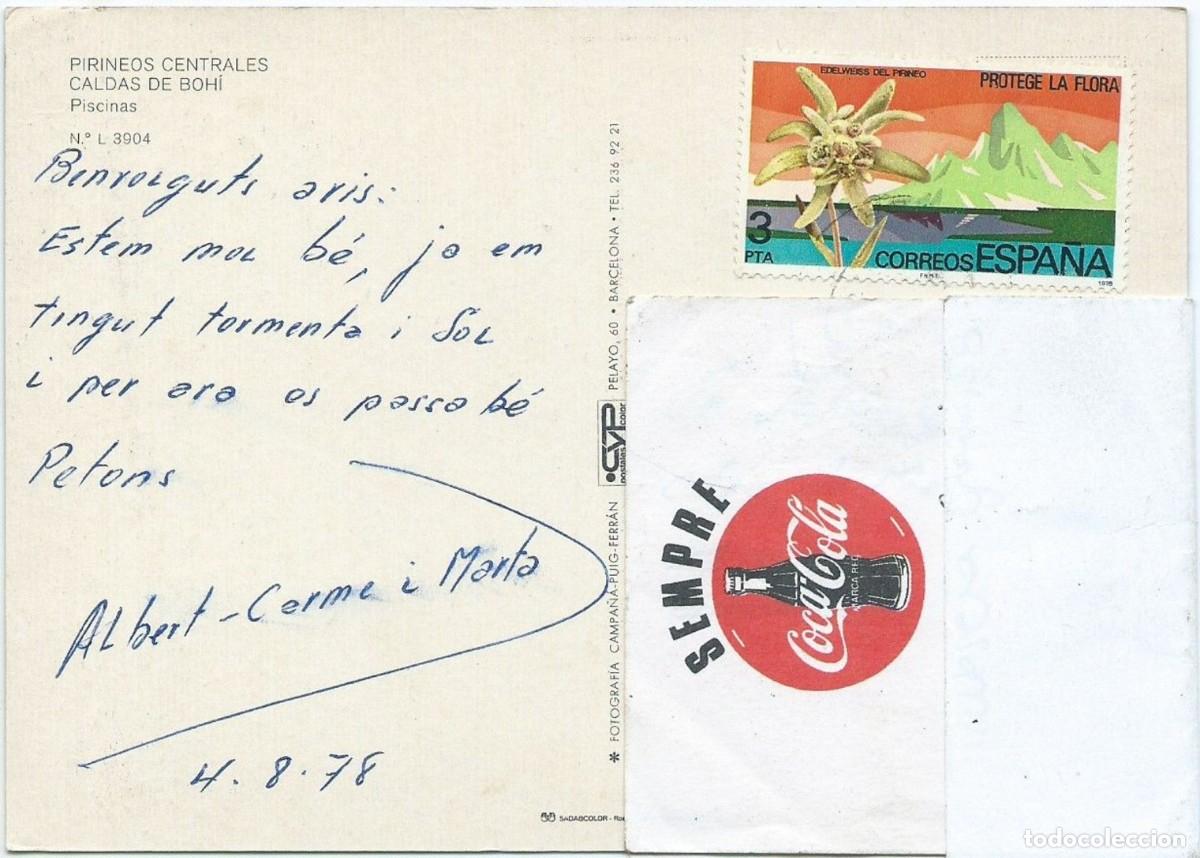 PIRINEOS CENTRALES
CALDAS DE BOHÍ
Piscinas
N.º L 3904
Benvolguts avis:
Estem mol bé, ja em
tingut tormenta i Sol
i per ara os passa bé
Petons
Albert - Carme i Marta
4.8.78
* FOTOGRAFÍA CAMPAÑA-PUIG-FERRÁN
CYP
postales color
PELAYO, 60 • BARCELONA • TEL. 236 92 21
SADAGCOLOR -
EDELWEISS DEL PIRINEO
PROTEGE LA FLORA
3
PTA
CORREOS ESPAÑA
F.N.M.T.
1978
SEMPRE
Coca-Cola
MARCA REG.
todocoleccion